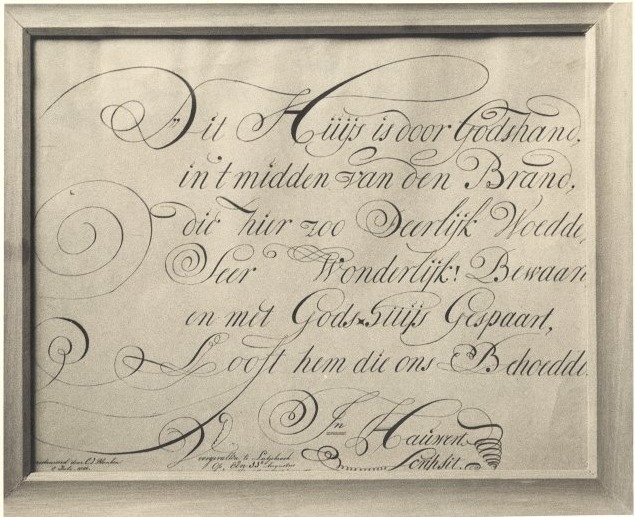 Dit Huijs is door Godshand,
in't midden van den Brand,
die hier zoo Deerlijk Woedde,
Seer Wonderlijk! Bewaard
en met Gods Huijs Gespaart,
Looft hem die ons Behoedde
Jn Hauwert
te
Op den